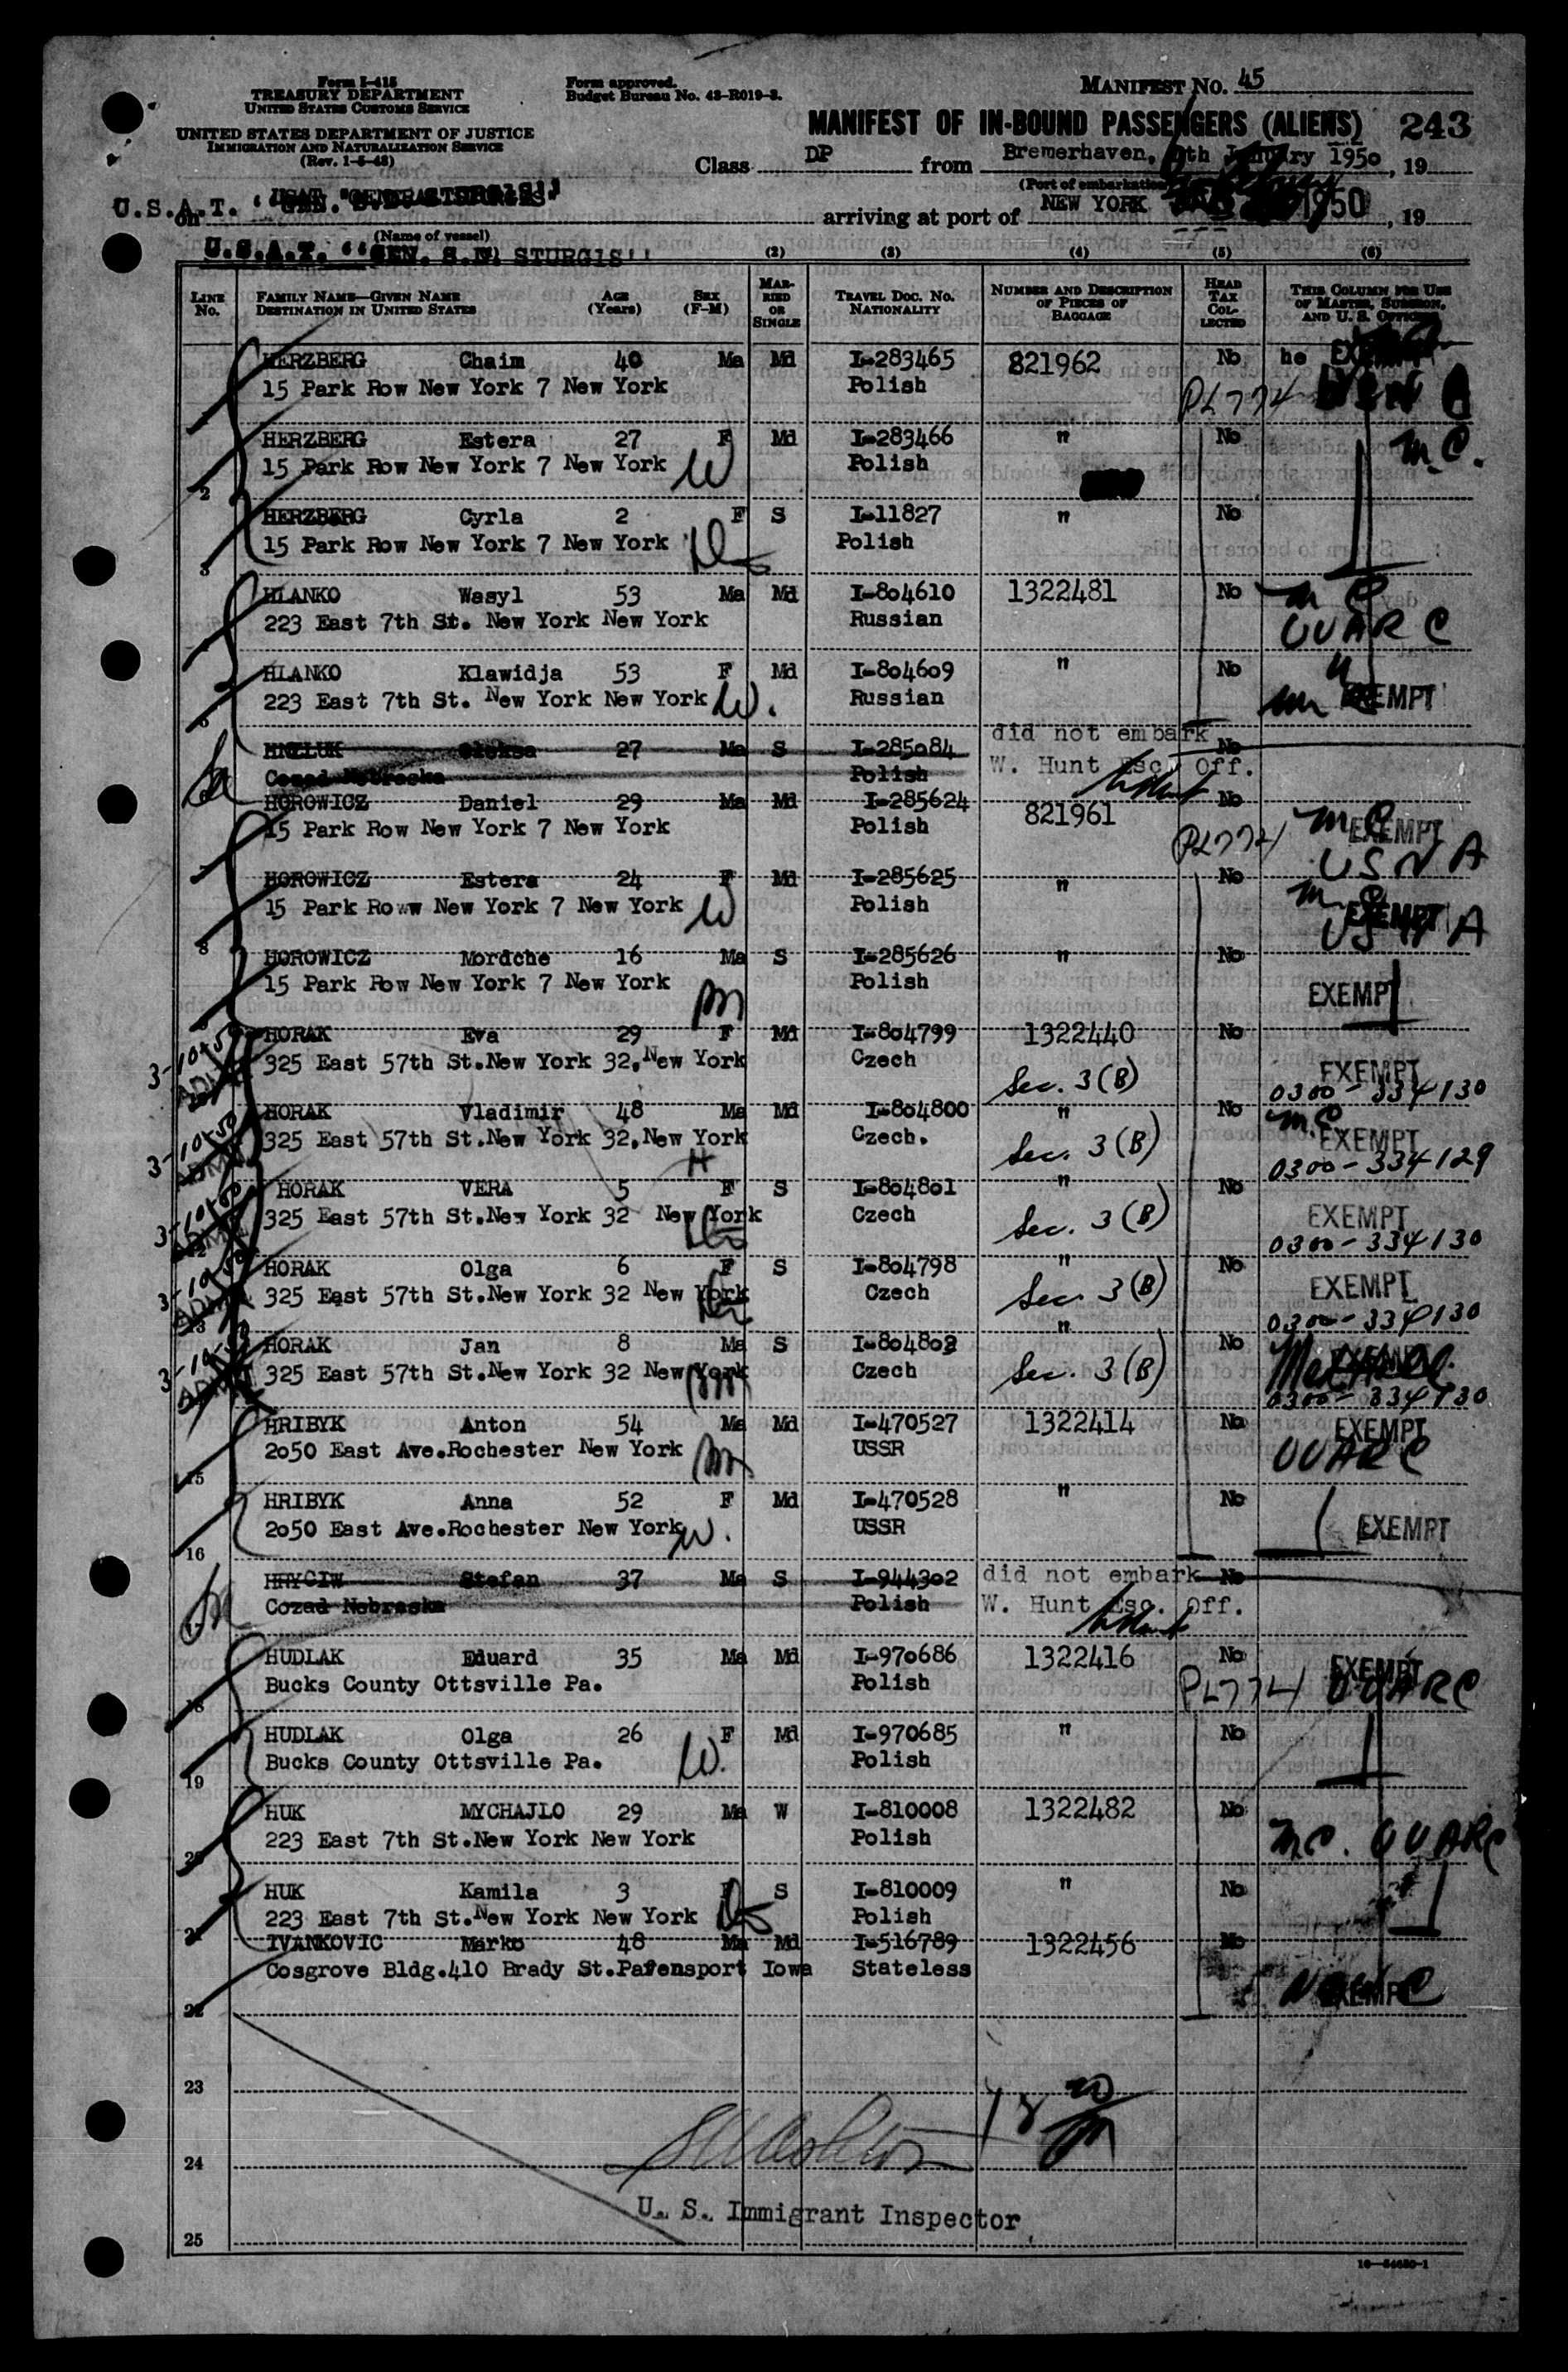 Form I-415
TREASURY DEPARTMENT
UNITED STATES CUSTOMS SERVICE
UNITED STATES DEPARTMENT OF JUSTICE
IMMIGRATION AND NATURALIZATION SERVICE
(Rev. 1-5-48)
Form approved.
Budget Bureau No. 43-R019-3.
MANIFEST NO. 45
MANIFEST OF IN-BOUND PASSENGERS (ALIENS) 243
Class DP from Bremerhaven, January 1950, 19
(Port of embarkation)
U.S.A.T.
on arriving at port of NEW YORK 1950, 19
(Name of vessel)
U.S.A.T. "GEN. S.D. STURGIS"
(2) (3) (4) (5) (6)
LINE No. FAMILY NAME—GIVEN NAME DESTINATION IN UNITED STATES AGE (Years) SEX (F-M) MARRIED OR SINGLE TRAVEL DOC. NO. NATIONALITY NUMBER AND DESCRIPTION OF PIECES OF BAGGAGE HEAD TAX COLLECTED THIS COLUMN FOR USE OF MASTER, SURGEON, AND U. S. OFFICERS
HERZBERG Chaim 40 Ma Md I-283465 821962 No he
15 Park Row New York 7 New York Polish PL774
HERZBERG Estera 27 F Md I-283466 " No M.C.
15 Park Row New York 7 New York W Polish
2
HERZBERG Cyrla 2 F S I-11827 " No
15 Park Row New York 7 New York Polish
3
HLANKO Wasyl 53 Ma Md I-804610 1322481 No MC
223 East 7th St. New York New York Russian UUARC
HLANKO Klawidja 53 F Md I-804609 " No "
223 East 7th St. New York New York W. Russian EXEMPT
did not embark
27 Ma S I-285084 No
Cozad Nebraska Polish W. Hunt Esc. Off.
HOROWICZ Daniel 29 Ma Md I-285624 No
15 Park Row New York 7 New York Polish 821961 PL774 MC EXEMPT
USNA
HOROWICZ Estera 24 F Md I-285625 " No M.C.
15 Park Roww New York 7 New York W Polish EXEMPT USNA
8
HOROWICZ Mordche 16 Ma S I-285626 " No
15 Park Row New York 7 New York Polish EXEMPT
HORAK Eva 29 F Md I-804799 1322440 No
3-10-50 325 East 57th St.New York 32,New York Czech Sec. 3(B) EXEMPT
0300-334130
HORAK Vladimir 48 Ma Md I-804800 " No MC
3-10-50 325 East 57th St.New York 32,New York Czech. Sec. 3(B) EXEMPT
H 0300-334129
HORAK VERA 5 F S I-804801 " No
3-10-50 325 East 57th St.New York 32 New York Czech Sec. 3(B) EXEMPT
0300-334130
HORAK Olga 6 F S I-804798 " No
3-10-50 325 East 57th St.New York 32 New York Czech Sec. 3(B) EXEMPT
13 0300-334130
HORAK Jan 8 Ma S I-804802 " No
325 East 57th St.New York 32 New York Czech Sec. 3(B)
0300-334130
HRIBYK Anton 54 Ma Md I-470527 1322414 No EXEMPT
2050 East Ave.Rochester New York USSR UUARC
15
HRIBYK Anna 52 F Md I-470528 " No
2050 East Ave.Rochester New York W. USSR EXEMPT
16
HRYCIW Stefan 37 Ma S I-944302 did not embark No
Cozad Nebraska Polish W. Hunt Esc. Off.
HUDLAK Eduard 35 Ma Md I-970686 1322416 No EXEMPT
Bucks County Ottsville Pa. Polish PL774 UUARC
18
HUDLAK Olga 26 F Md I-970685 " No
Bucks County Ottsville Pa. W. Polish
19
HUK MYCHAJLO 29 Ma W I-810008 1322482 No
223 East 7th St.New York New York Polish M.C. UUARC
20
HUK Kamila 3 S I-810009 " No
223 East 7th St.New York New York Polish
IVANKOVIC Marko 48 Ma Md I-516789 1322456 No
Cosgrove Bldg.410 Brady St. Iowa Stateless
EXEMPT
22
23
24
U. S. Immigrant Inspector
25
16—54620-1